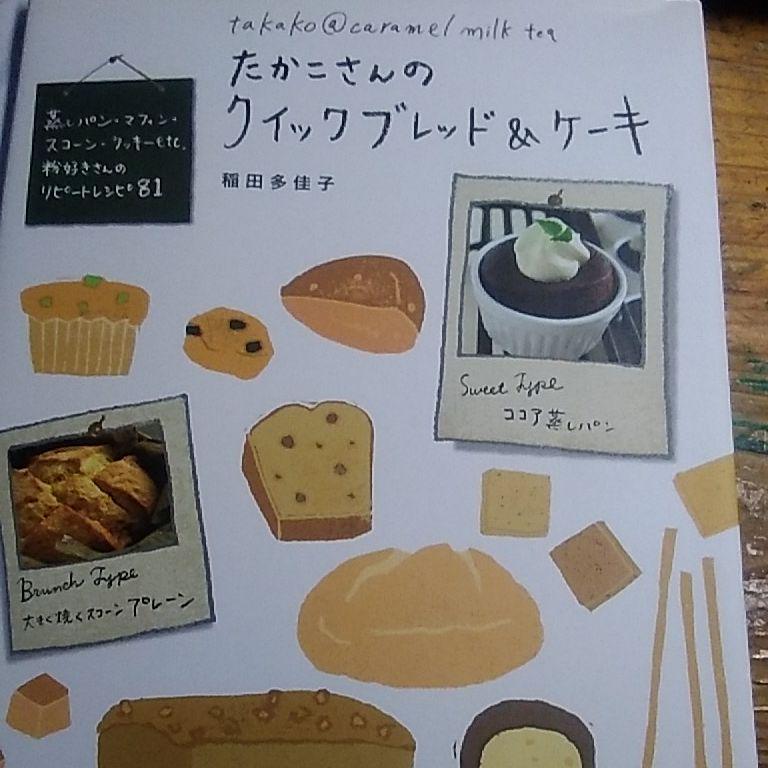 takako@caramel milk tea
たかこさんの
クイックブレッド&ケーキ
稲田多佳子
蒸しパン・マフィン・
スコーン・クッキーetc.
粉好きさんの
リピートレシピ81
Sweet Type
ココア蒸しパン
Brunch Type
大きく焼くスコーン プレーン